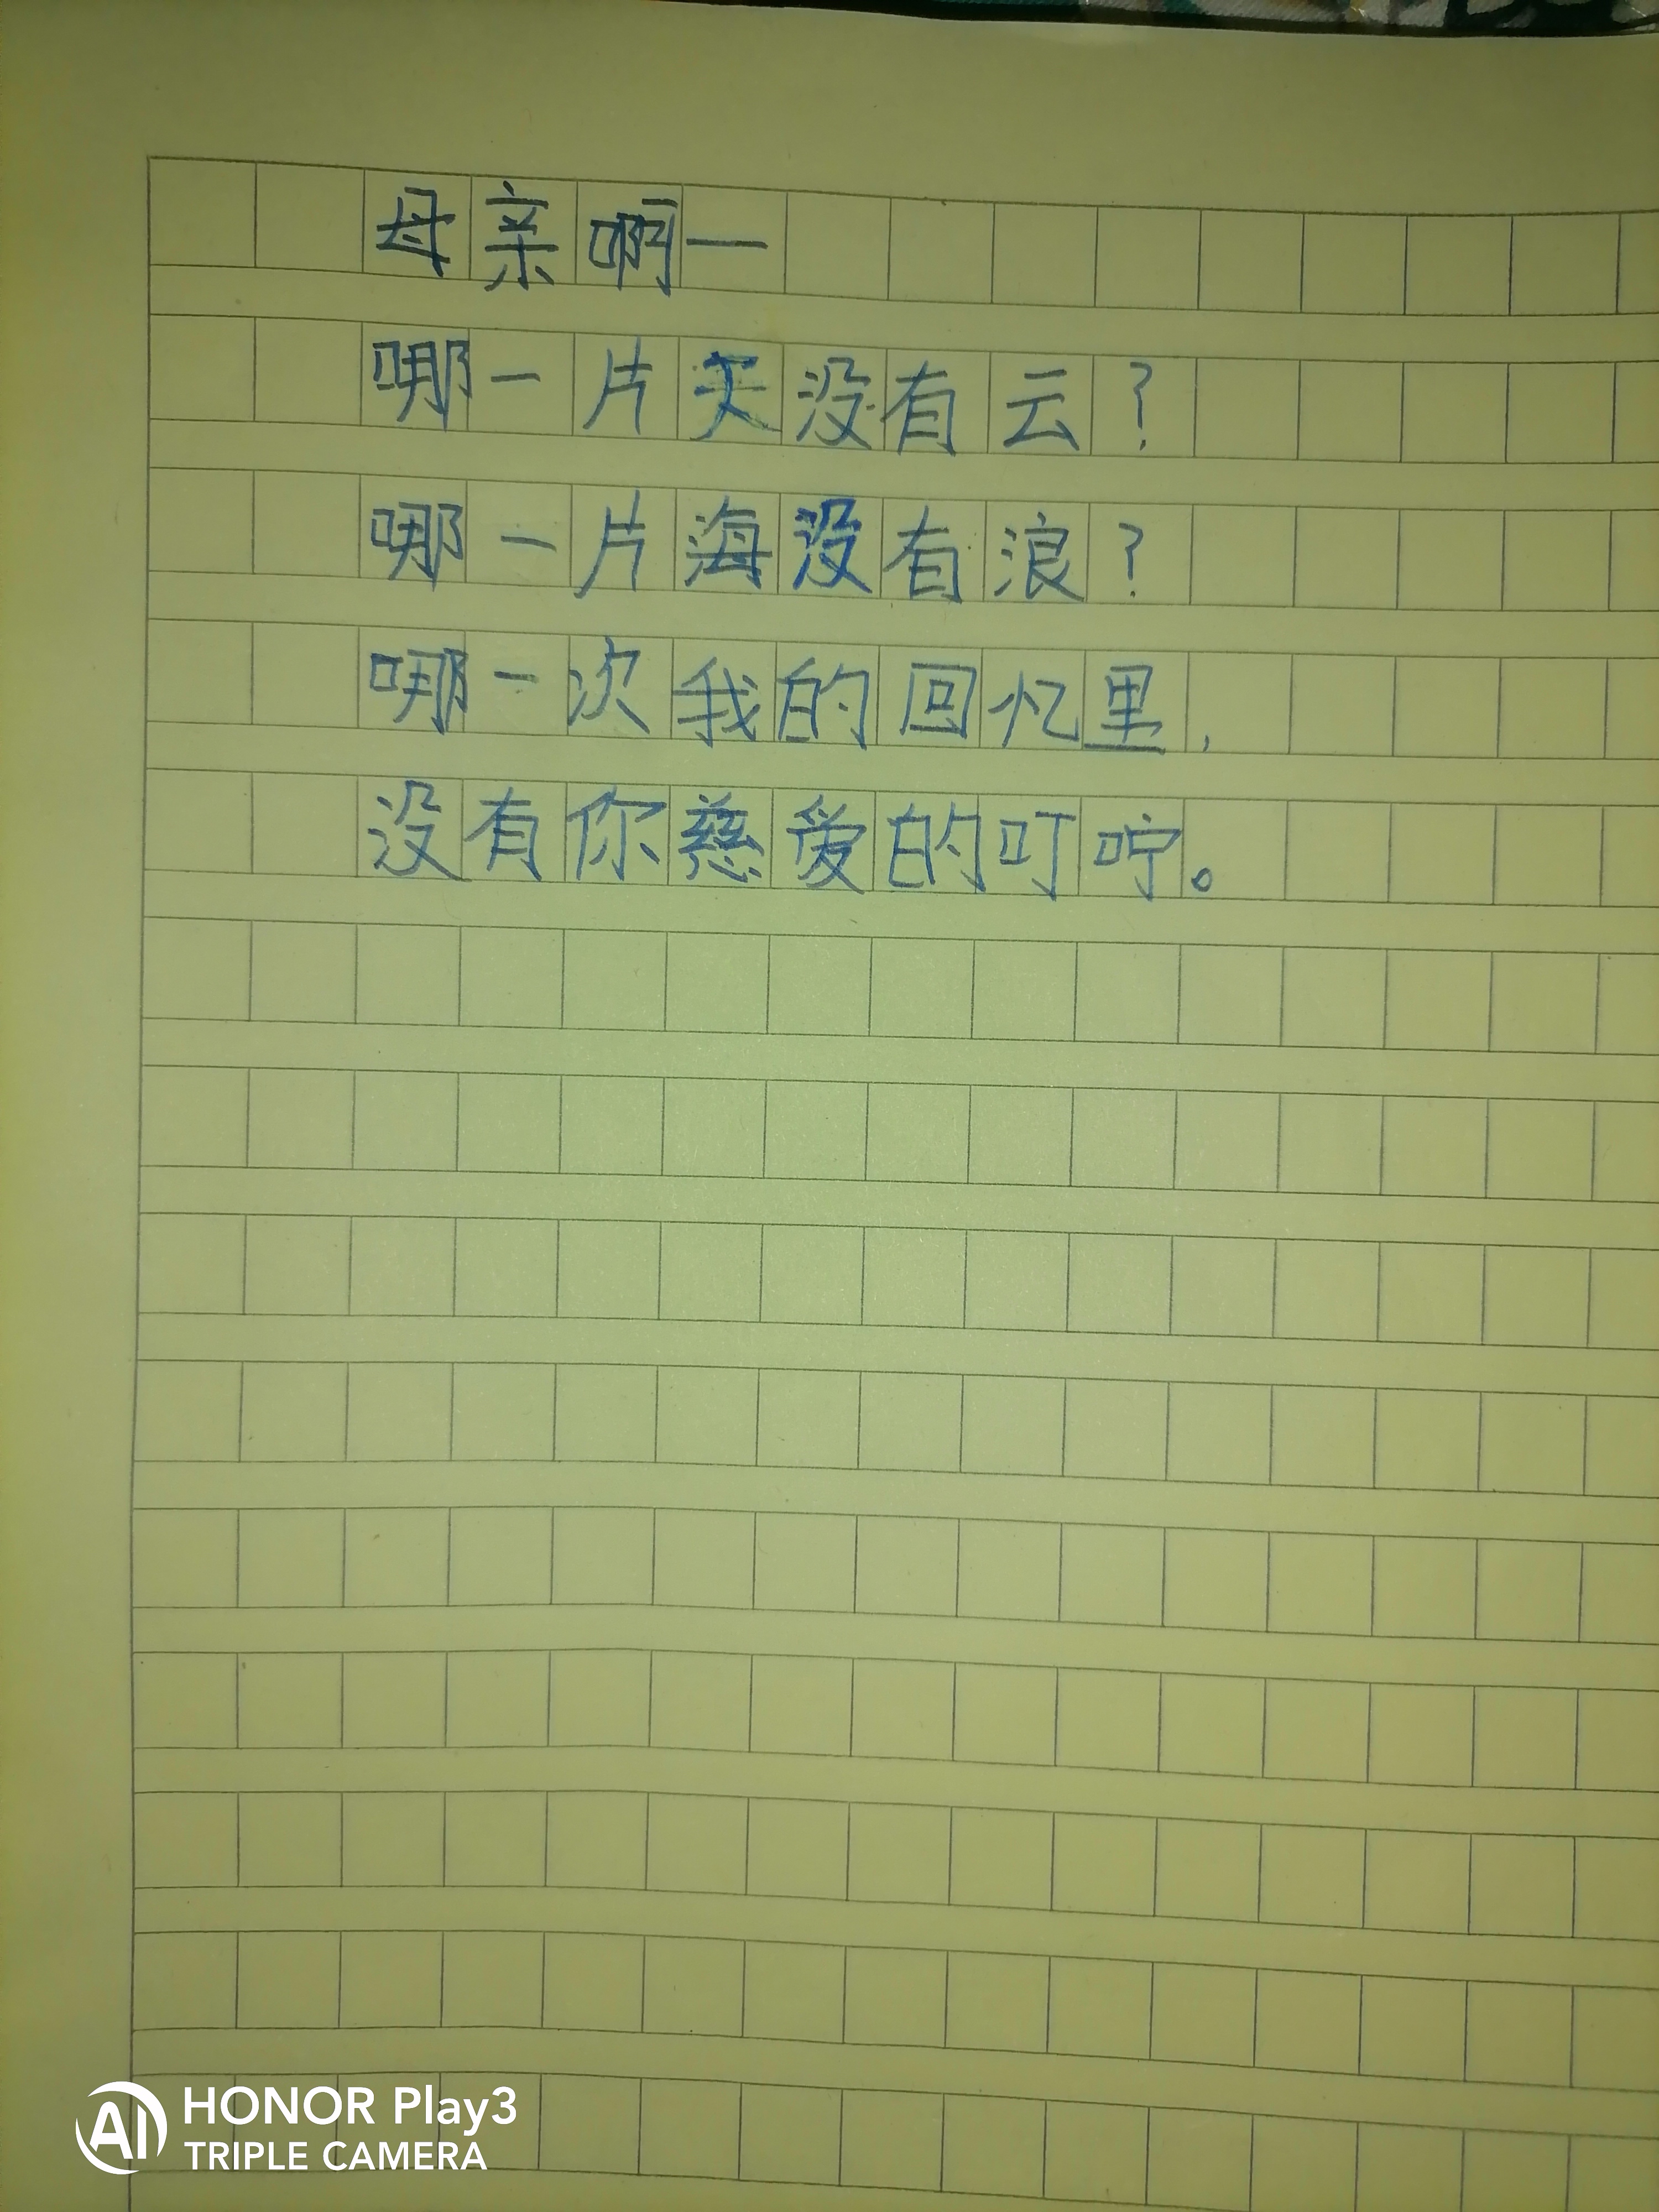 母亲啊—
哪一片天没有云？
哪一片海没有浪？
哪一次我的回忆里，
没有你慈爱的叮咛。
HONOR Play3
TRIPLE CAMERA